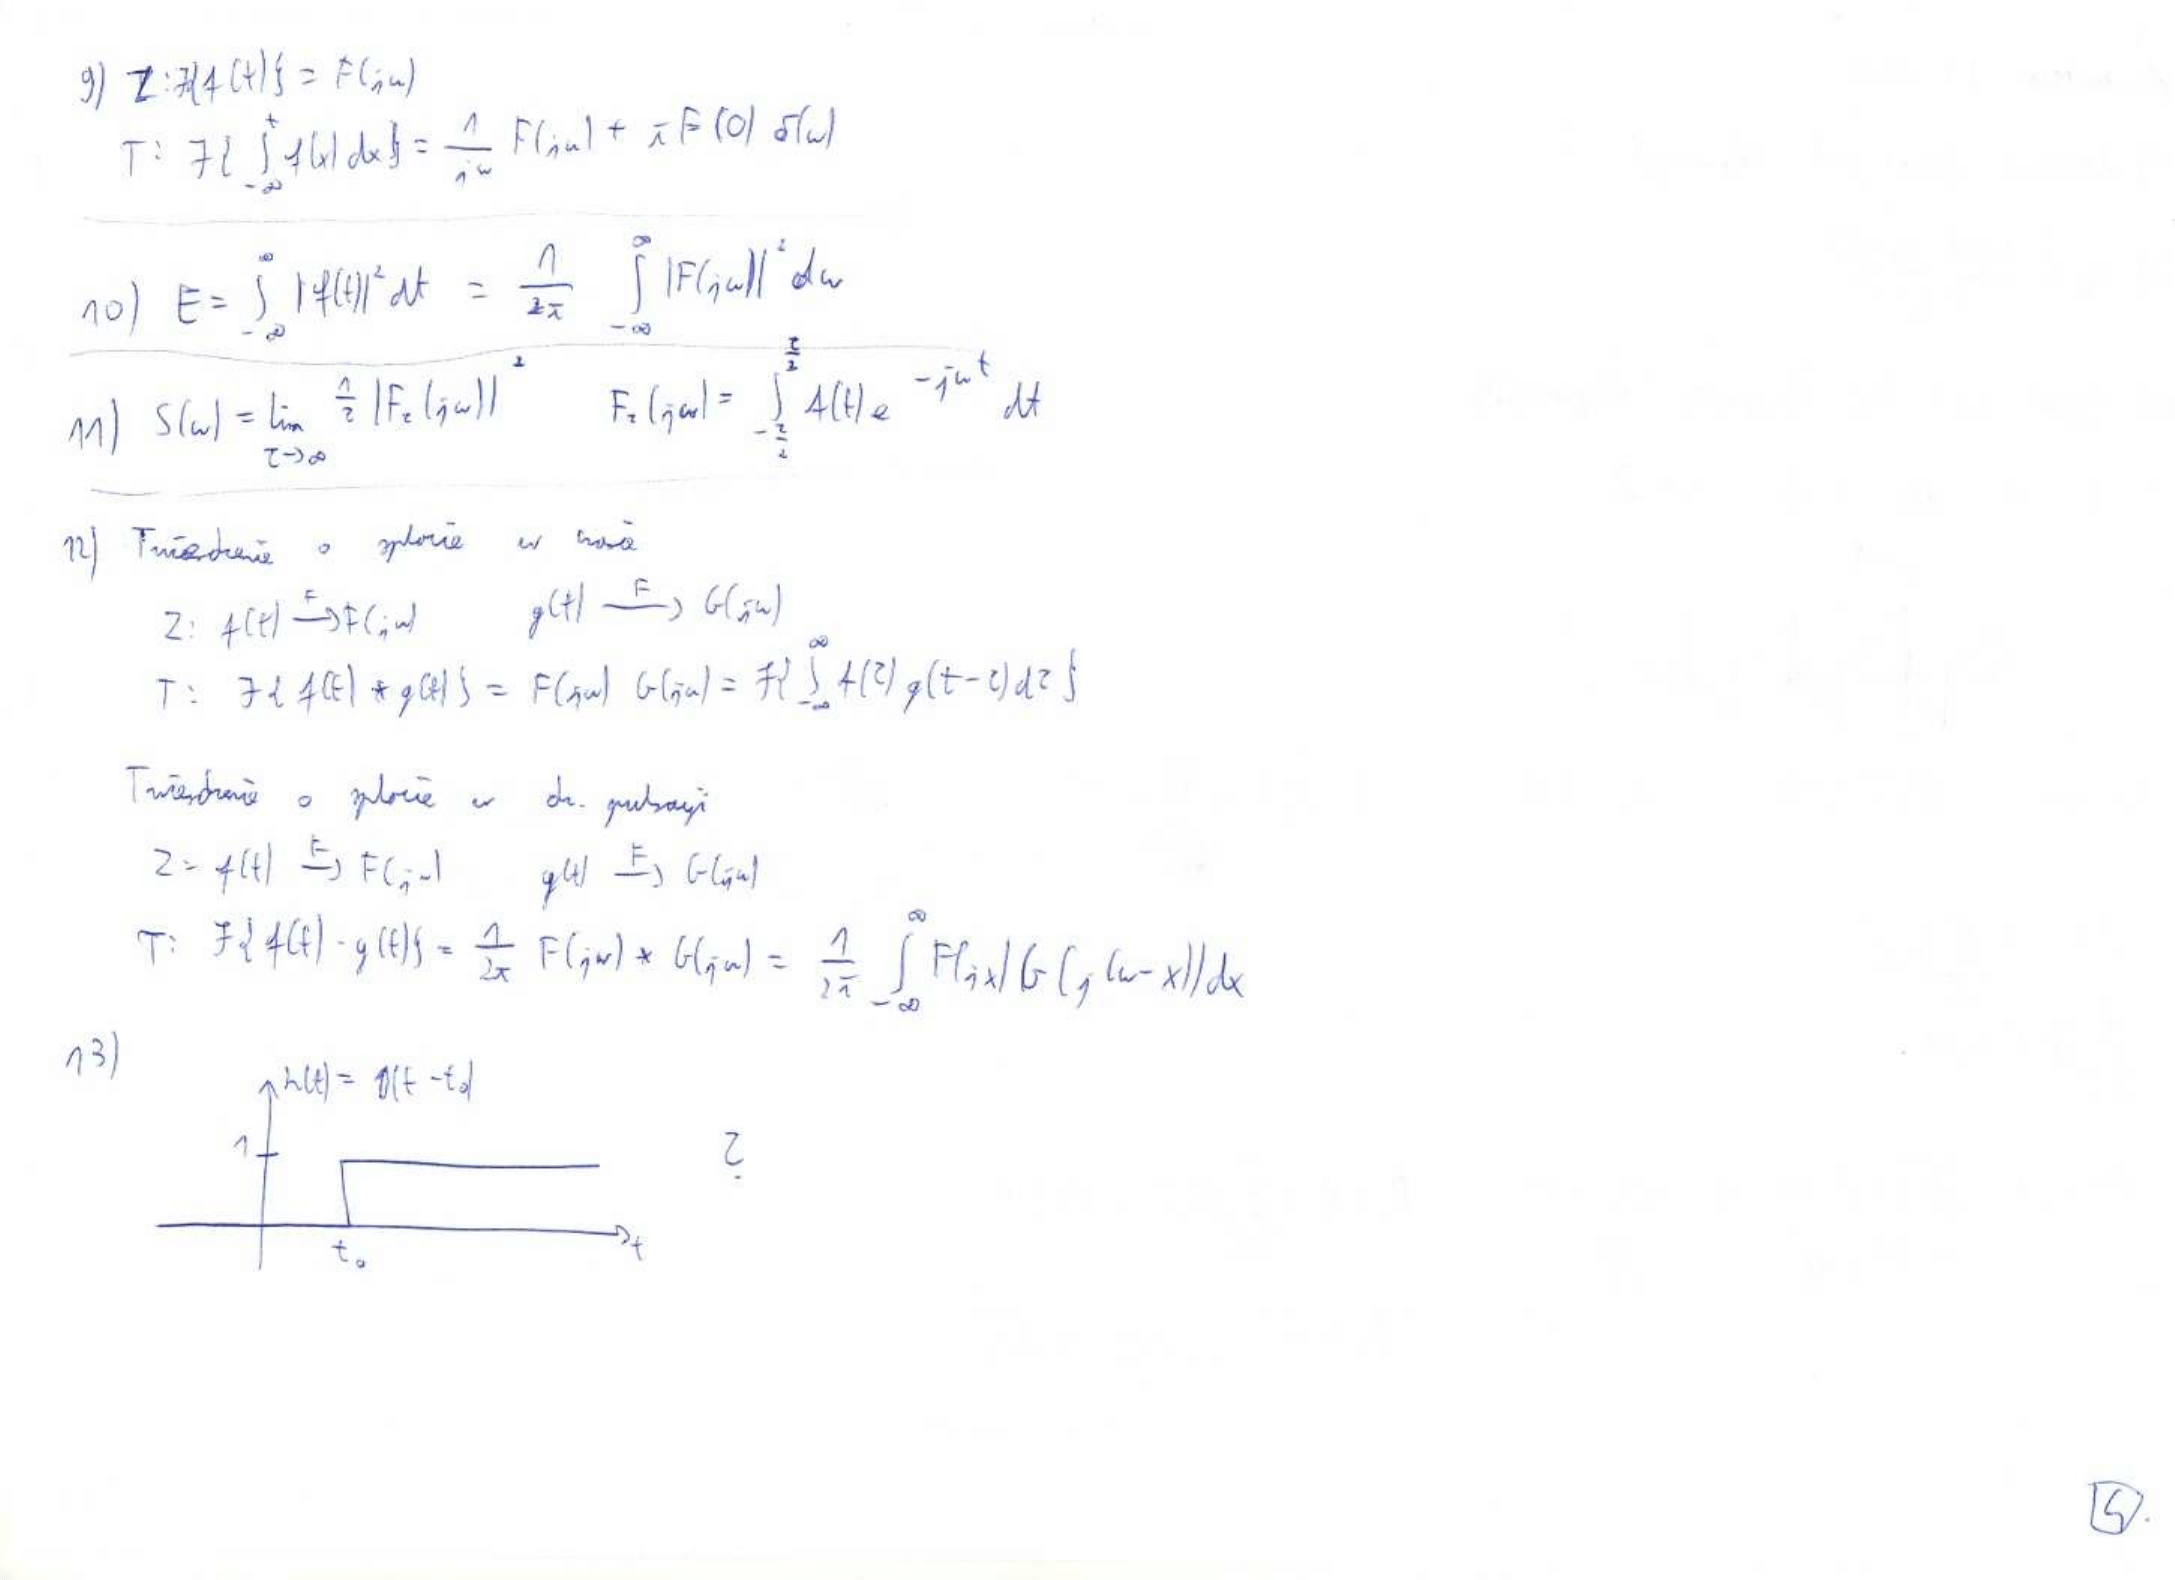 9) Z: ℱ{f(t)} = F(jω)
T: ℱ{∫_{-∞}^{t} f(x) dx} = 1/jω F(jω) + π F(0) δ(ω)
10) E = ∫_{-∞}^{∞} |f(t)|² dt = 1/2π ∫_{-∞}^{∞} |F(jω)|² dω
11) S(ω) = lim_{τ→∞} 1/τ |F_τ(jω)|² F_τ(jω) = ∫_{-τ/2}^{τ/2} f(t) e^{-jωt} dt
12) Twierdzenie o splocie w czasie
Z: f(t) →^F F(jω) g(t) →^F G(jω)
T: ℱ{f(t) * g(t)} = F(jω) G(jω) = ℱ{∫_{-∞}^{∞} f(τ) g(t-τ) dτ}
Twierdzenie o splocie w dz. pulsacji
Z: f(t) →^F F(jω) g(t) →^F G(jω)
T: ℱ{f(t) · g(t)} = 1/2π F(jω) * G(jω) = 1/2π ∫_{-∞}^{∞} F(jx) G(j(ω-x)) dx
13)
h(t) = 1(t - t₀)
1
?
t₀ t
5.